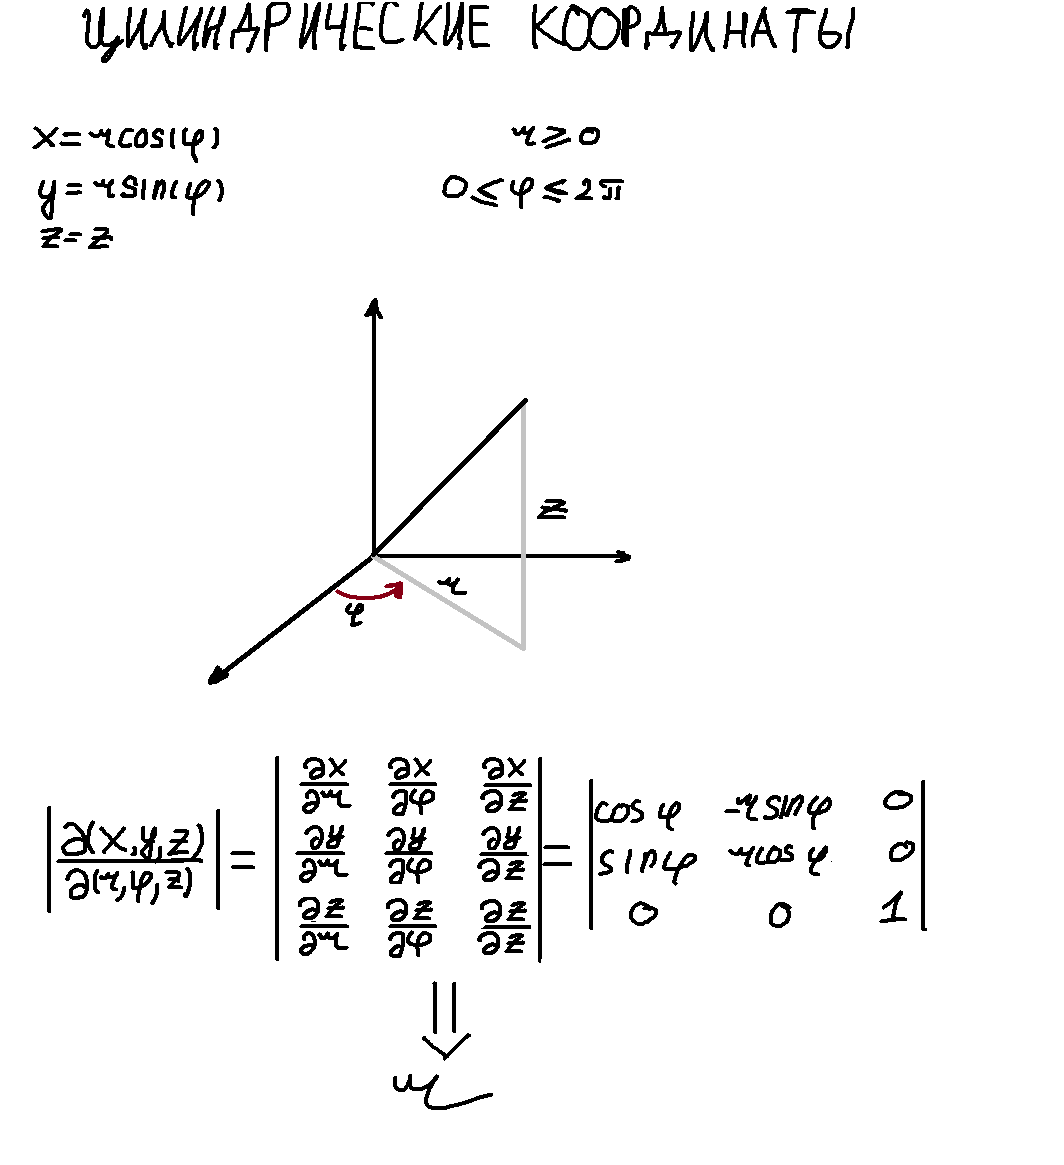 ЦИЛИНДРИЧЕСКИЕ КООРДИНАТЫ
x = r cos(φ) r ⩾ 0
y = r sin(φ) 0 ≤ φ ≤ 2π
z = z
z
r
φ
|∂(x,y,z)/∂(r,φ,z)| = |∂x/∂r ∂x/∂φ ∂x/∂z; ∂y/∂r ∂y/∂φ ∂y/∂z; ∂z/∂r ∂z/∂φ ∂z/∂z| = |cos φ -r sin φ 0; sin φ r cos φ 0; 0 0 1|
⇓
r